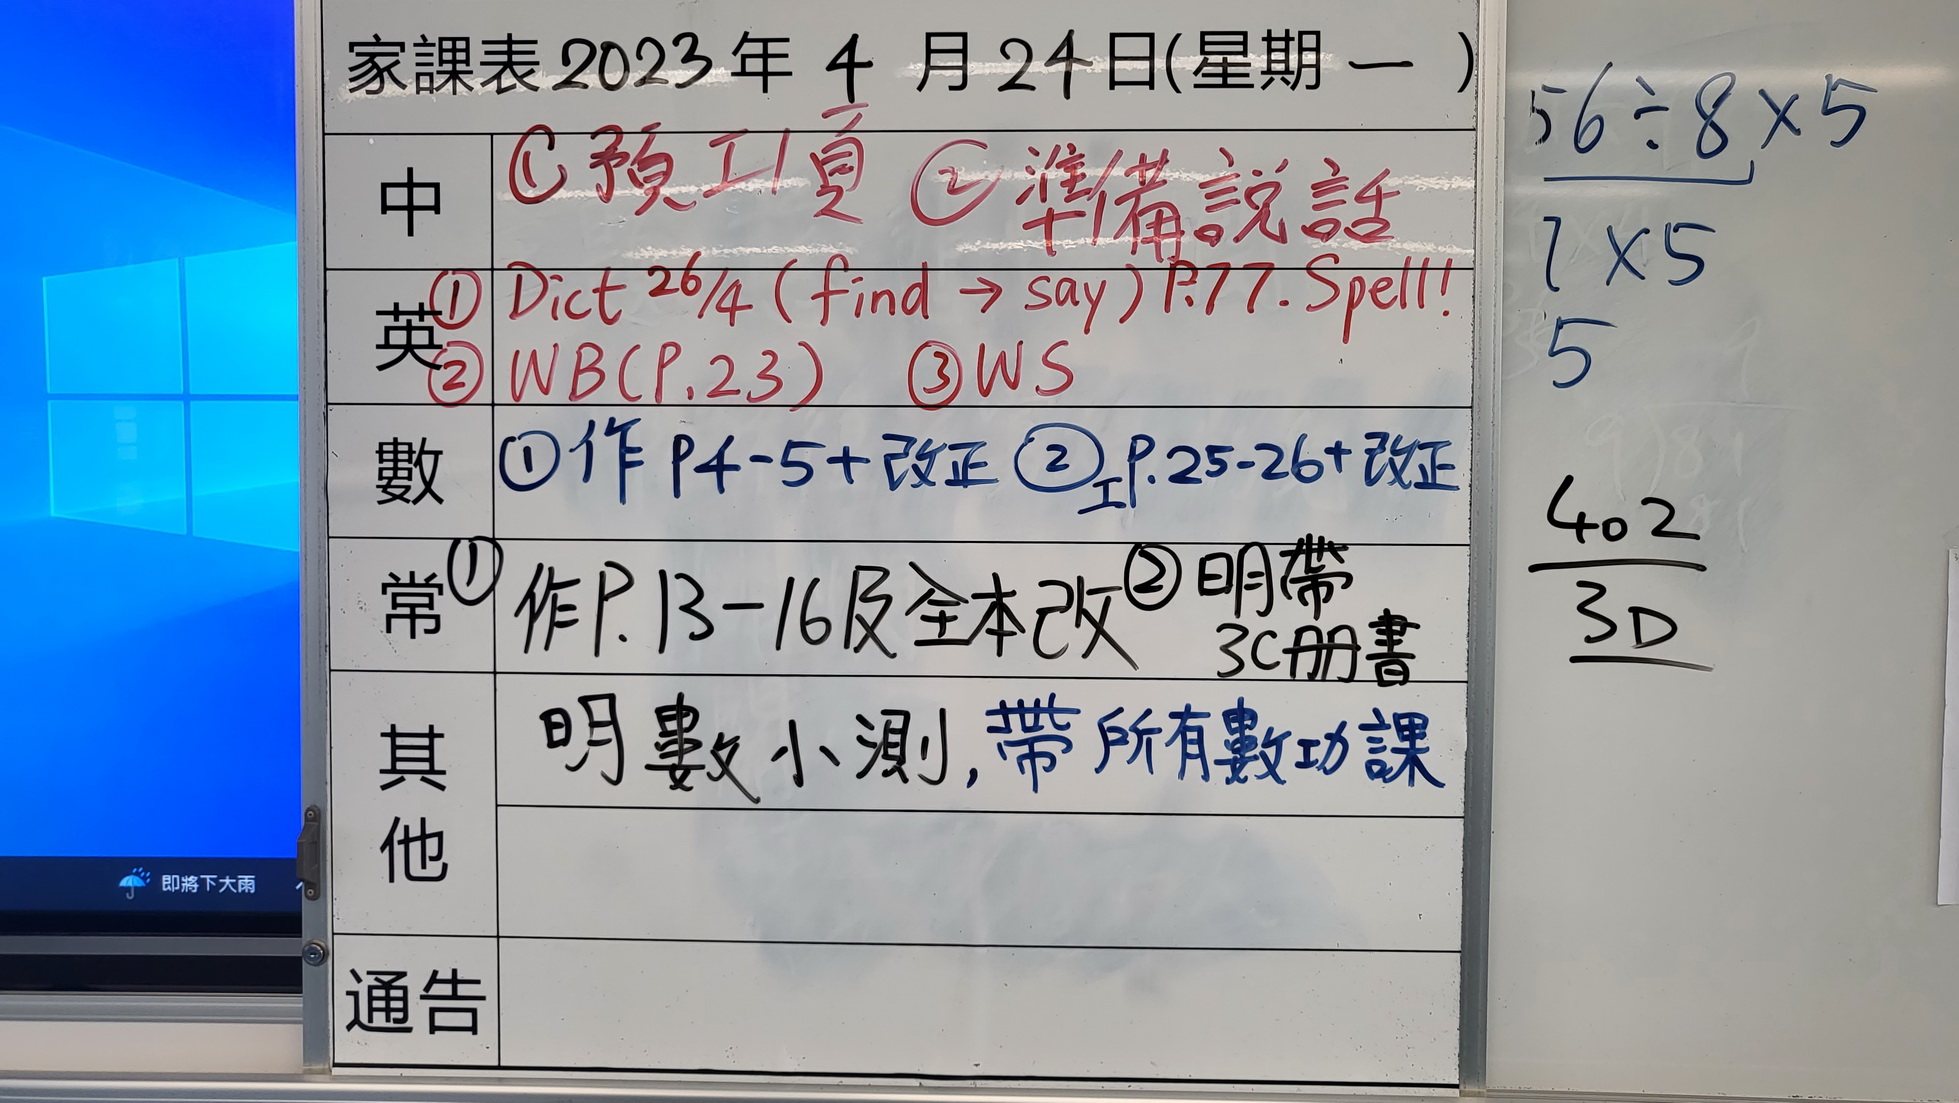 家課表2023年 4 月24日(星期一 )
中 ①預工1頁 ②準備說話
英 ① Dict 26/4 (find → say) P.77. Spell!
② WB(P.23) ③WS
數 ①作 P4-5+改正 ②工P.25-26+改正
常 ① 作P.13-16及全本改 ②明帶
3C冊書
其他 明數小測,帶所有數功課
通告
即將下大雨
56÷8×5
7×5
5
402
3D